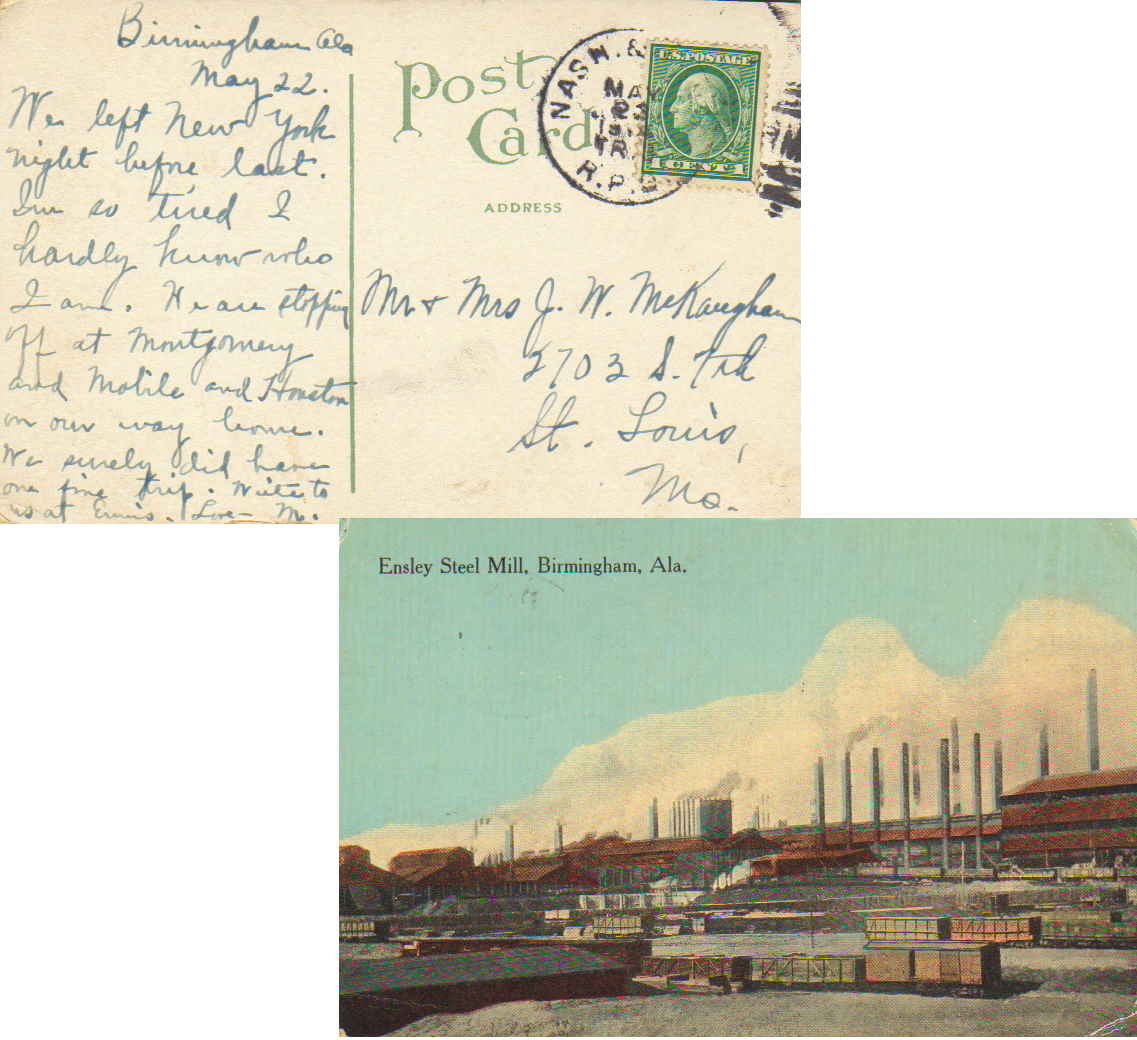 Birmingham Ala
May 22.
We left New York
night before last.
I'm so tired I
hardly know who
I am. We are stopping
off at Montgomery
and Mobile and Houston
on our way home.
We surely did have
one fine trip. Write to
us at Ennis. Love - M.
Post
Card
ADDRESS
NASH. &
MAY
23
TR.
R.P.O.
U.S. POSTAGE
1 CENT 1
Mr & Mrs J. W. McKaughan
2703 S. 7th
St. Louis,
Mo.
Ensley Steel Mill, Birmingham, Ala.